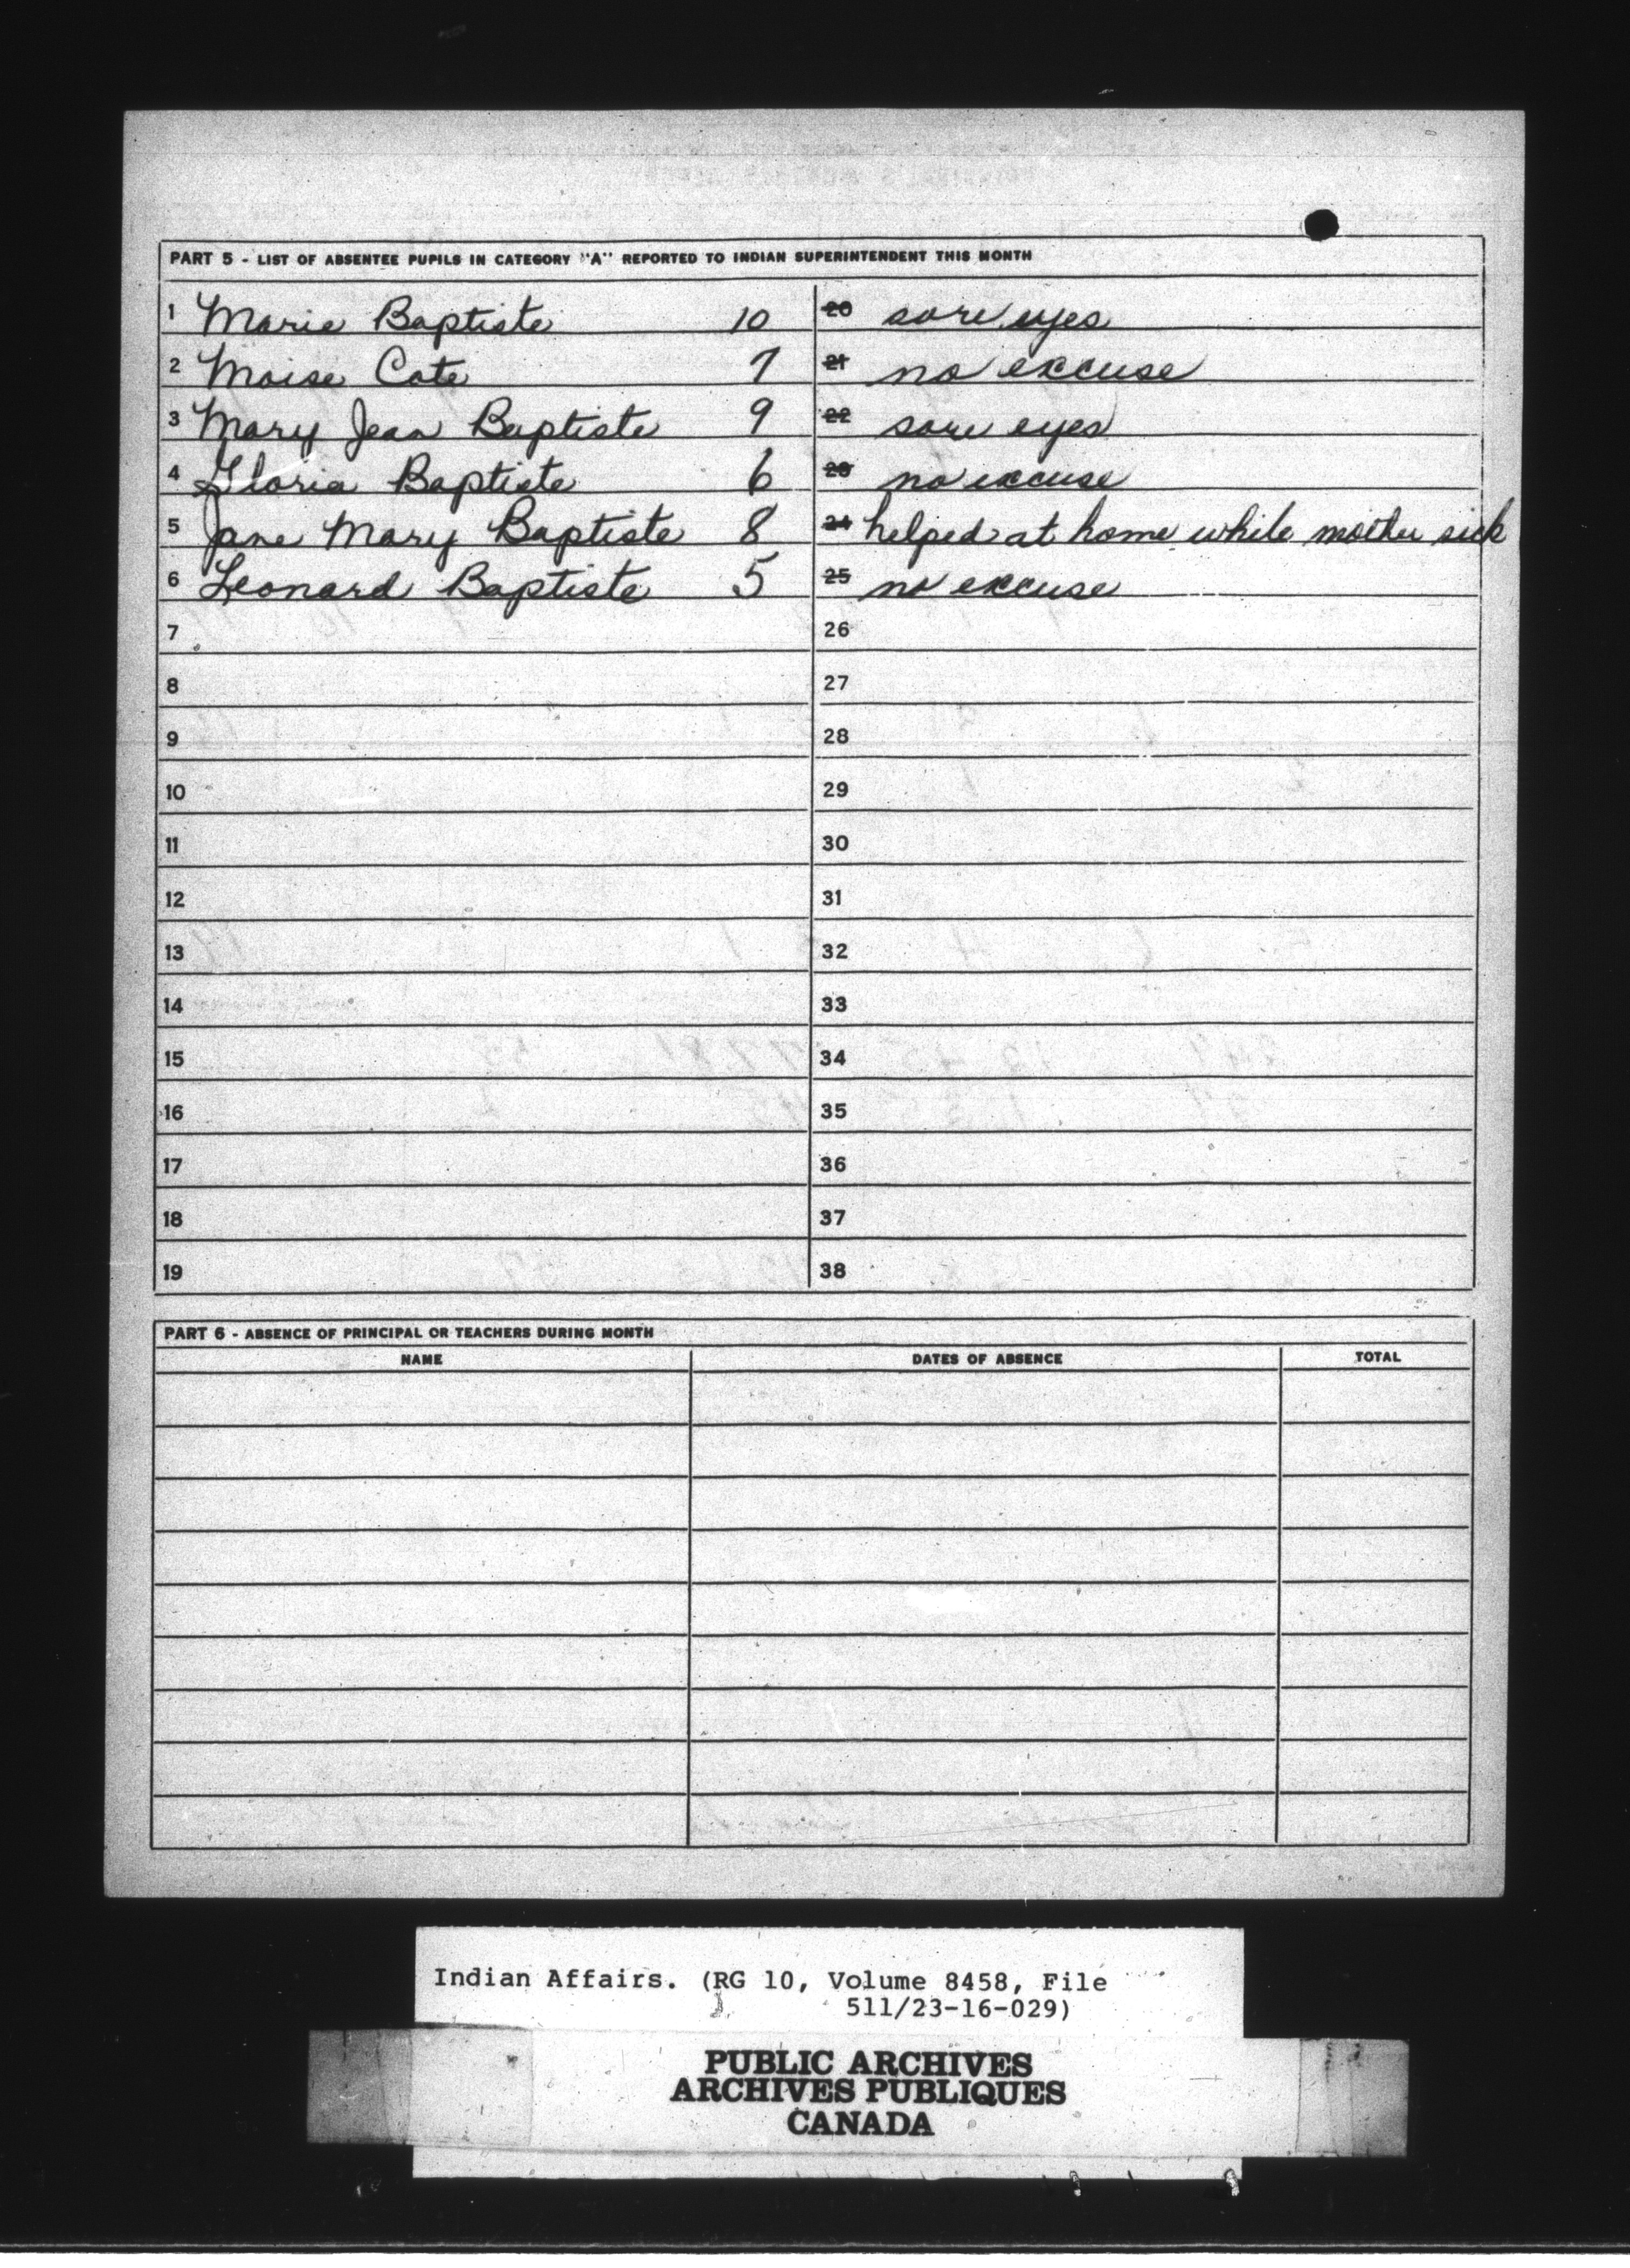 PART 5 - LIST OF ABSENTEE PUPILS IN CATEGORY "A" REPORTED TO INDIAN SUPERINTENDENT THIS MONTH
1 Marie Baptiste 10 20 sore eyes
2 Moise Cote 7 21 no excuse
3 Mary Jean Baptiste 9 22 sore eyes
4 Gloria Baptiste 6 23 no excuse
5 Jane Mary Baptiste 8 24 helped at home while mother sick
6 Leonard Baptiste 5 25 no excuse
7 26
8 27
9 28
10 29
11 30
12 31
13 32
14 33
15 34
16 35
17 36
18 37
19 38
PART 6 - ABSENCE OF PRINCIPAL OR TEACHERS DURING MONTH
NAME DATES OF ABSENCE TOTAL
Indian Affairs. (RG 10, Volume 8458, File
511/23-16-029)
PUBLIC ARCHIVES
ARCHIVES PUBLIQUES
CANADA